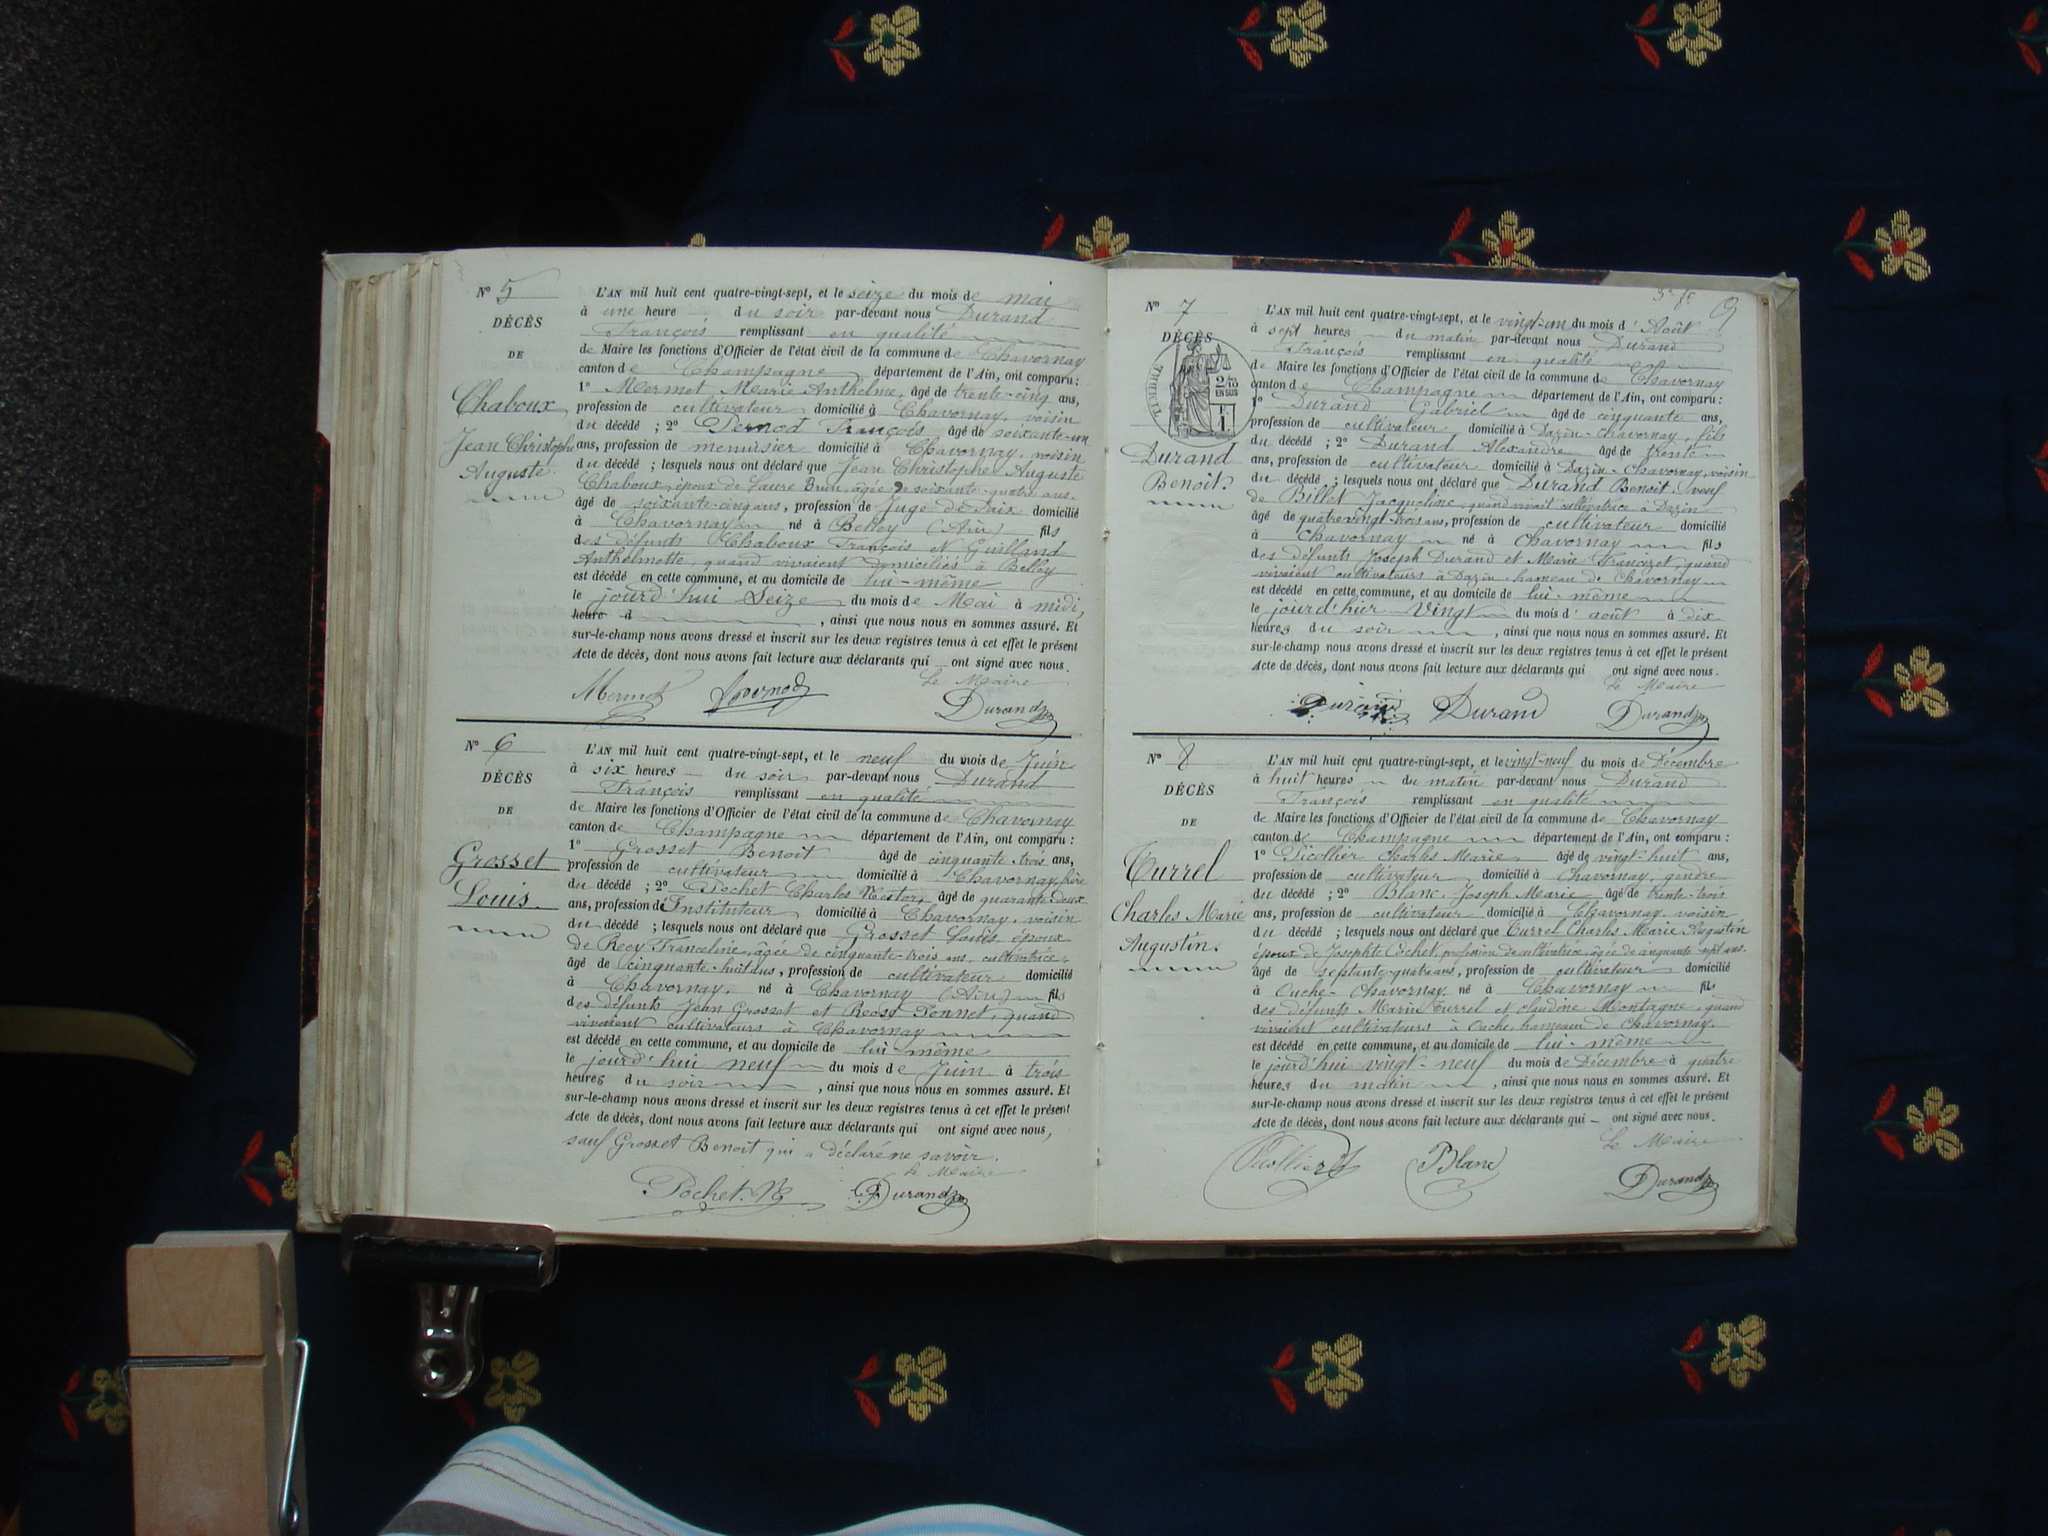 N° 5
DÉCÈS
DE
Chaboux
Jean Christophe
Auguste
L'AN mil huit cent quatre-vingt-sept, et le seize du mois de mai
à une heure du soir par-devant nous Durand
François remplissant en qualité
de Maire les fonctions d'Officier de l'état civil de la commune de Chavornay
canton de Champagne département de l'Ain, ont comparu :
1° Mermet Marie Anthelme, âgé de trente-cinq ans,
profession de cultivateur domicilié à Chavornay, voisin
du décédé ; 2° Pernod François âgé de soixante-un
ans, profession de menuisier domicilié à Chavornay, voisin
du décédé ; lesquels nous ont déclaré que Jean Christophe Auguste
Chaboux, époux de Laure Brun, âgée de soixante-quatre ans,
âgé de soixante-cinq ans, profession de Juge de Paix domicilié
à Chavornay né à Belley (Ain) fils
des défunts Chaboux François et Guilland
Anthelmette, quand vivaient domiciliés à Belley
est décédé en cette commune, et au domicile de lui-même
le jourd'hui Seize du mois de Mai à midi,
heure d , ainsi que nous nous en sommes assuré. Et
sur-le-champ nous avons dressé et inscrit sur les deux registres tenus à cet effet le présent
Acte de décès, dont nous avons fait lecture aux déclarants qui ont signé avec nous.
Le Maire
Mermet Pernod Durand
N° 6
DÉCÈS
DE
Grosset
Louis
L'AN mil huit cent quatre-vingt-sept, et le neuf du mois de Juin
à six heures du soir par-devant nous Durand
François remplissant en qualité
de Maire les fonctions d'Officier de l'état civil de la commune de Chavornay
canton de Champagne département de l'Ain, ont comparu :
1° Grosset Benoit âgé de cinquante-trois ans,
profession de cultivateur domicilié à Chavornay, frère
du décédé ; 2° Pochet Charles Nestor, âgé de quarante-deux
ans, profession d'Instituteur domicilié à Chavornay, voisin
du décédé ; lesquels nous ont déclaré que Grosset Louis, époux
de Recy Franceline, âgée de cinquante-trois ans, cultivatrice,
âgé de cinquante-huit ans, profession de cultivateur domicilié
à Chavornay, né à Chavornay (Ain) fils
des défunts Jean Grosset et quand
vivaient cultivateurs à Chavornay
est décédé en cette commune, et au domicile de lui-même
le jourd'hui neuf du mois de Juin à trois
heures du soir , ainsi que nous nous en sommes assuré. Et
sur-le-champ nous avons dressé et inscrit sur les deux registres tenus à cet effet le présent
Acte de décès, dont nous avons fait lecture aux déclarants qui ont signé avec nous,
sauf Grosset Benoit qui a déclaré ne savoir.
Le Maire
Pochet. N Durand
9
N° 7
DÉCÈS
TIMBRE
2/10 EN SUS
Durand
Benoit
L'AN mil huit cent quatre-vingt-sept, et le vingt-un du mois d'Août
à sept heures du matin par-devant nous Durand
François remplissant en qualité
de Maire les fonctions d'Officier de l'état civil de la commune de Chavornay
canton de Champagne département de l'Ain, ont comparu :
1° Durand Gabriel âgé de cinquante ans,
profession de cultivateur domicilié à Dazin-Chavornay, fils
du décédé ; 2° Durand Alexandre âgé de trente
ans, profession de cultivateur domicilié à Dazin-Chavornay, voisin
du décédé ; lesquels nous ont déclaré que Durand Benoit, veuf
de Billet Jacqueline, quand vivait cultivatrice à Dazin
âgé de quatre-vingt-trois ans, profession de cultivateur domicilié
à Chavornay né à Chavornay fils
des défunts Joseph Durand et Marie Francizet, quand
vivaient cultivateurs à Dazin hameau de Chavornay
est décédé en cette commune, et au domicile de lui-même
le jourd'hier Vingt du mois d'août à dix
heures du soir , ainsi que nous nous en sommes assuré. Et
sur-le-champ nous avons dressé et inscrit sur les deux registres tenus à cet effet le présent
Acte de décès, dont nous avons fait lecture aux déclarants qui ont signé avec nous.
Le Maire
Durand Durand Durand
N° 8
DÉCÈS
DE
Turrel
Charles Marie
Augustin
L'AN mil huit cent quatre-vingt-sept, et le vingt-neuf du mois de Décembre
à huit heures du matin par-devant nous Durand
François remplissant en qualité
de Maire les fonctions d'Officier de l'état civil de la commune de Chavornay
canton de Champagne département de l'Ain, ont comparu :
1° Picollier Charles Marie, âgé de vingt-huit ans,
profession de cultivateur domicilié à Chavornay, gendre
du décédé ; 2° Blanc Joseph Marie âgé de trente-trois
ans, profession de cultivateur domicilié à Chavornay, voisin
du décédé ; lesquels nous ont déclaré que Turrel Charles Marie Augustin
époux de Josephte Cochet, profession de cultivatrice, âgée de cinquante-sept ans.
âgé de septante-quatre ans, profession de cultivateur domicilié
à Ouche-Chavornay né à Chavornay fils
des défunts Marin Turrel et Claudine Montagne, quand
vivaient cultivateurs à Ouche hameau de Chavornay.
est décédé en cette commune, et au domicile de lui-même
le jourd'hui vingt-neuf du mois de Décembre à quatre
heures du matin , ainsi que nous nous en sommes assuré. Et
sur-le-champ nous avons dressé et inscrit sur les deux registres tenus à cet effet le présent
Acte de décès, dont nous avons fait lecture aux déclarants qui ont signé avec nous.
Le Maire
Picollier Blanc Durand